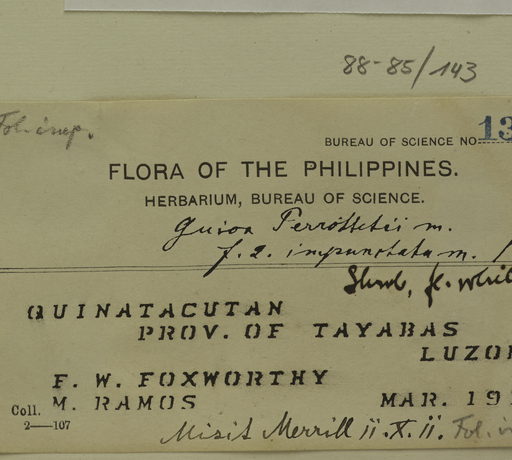 88-85/143
Fol. imp.
BUREAU OF SCIENCE NO. 13
FLORA OF THE PHILIPPINES.
HERBARIUM, BUREAU OF SCIENCE.
Guioa Perrottetii m.
f. 2. impunctata m.
Shrub, fl. whit
QUINATACUTAN
PROV. OF TAYABAS
LUZON
F. W. FOXWORTHY
Coll. M. RAMOS MAR. 191
2—107
Misit Merrill ii. X. ii. Fol. i